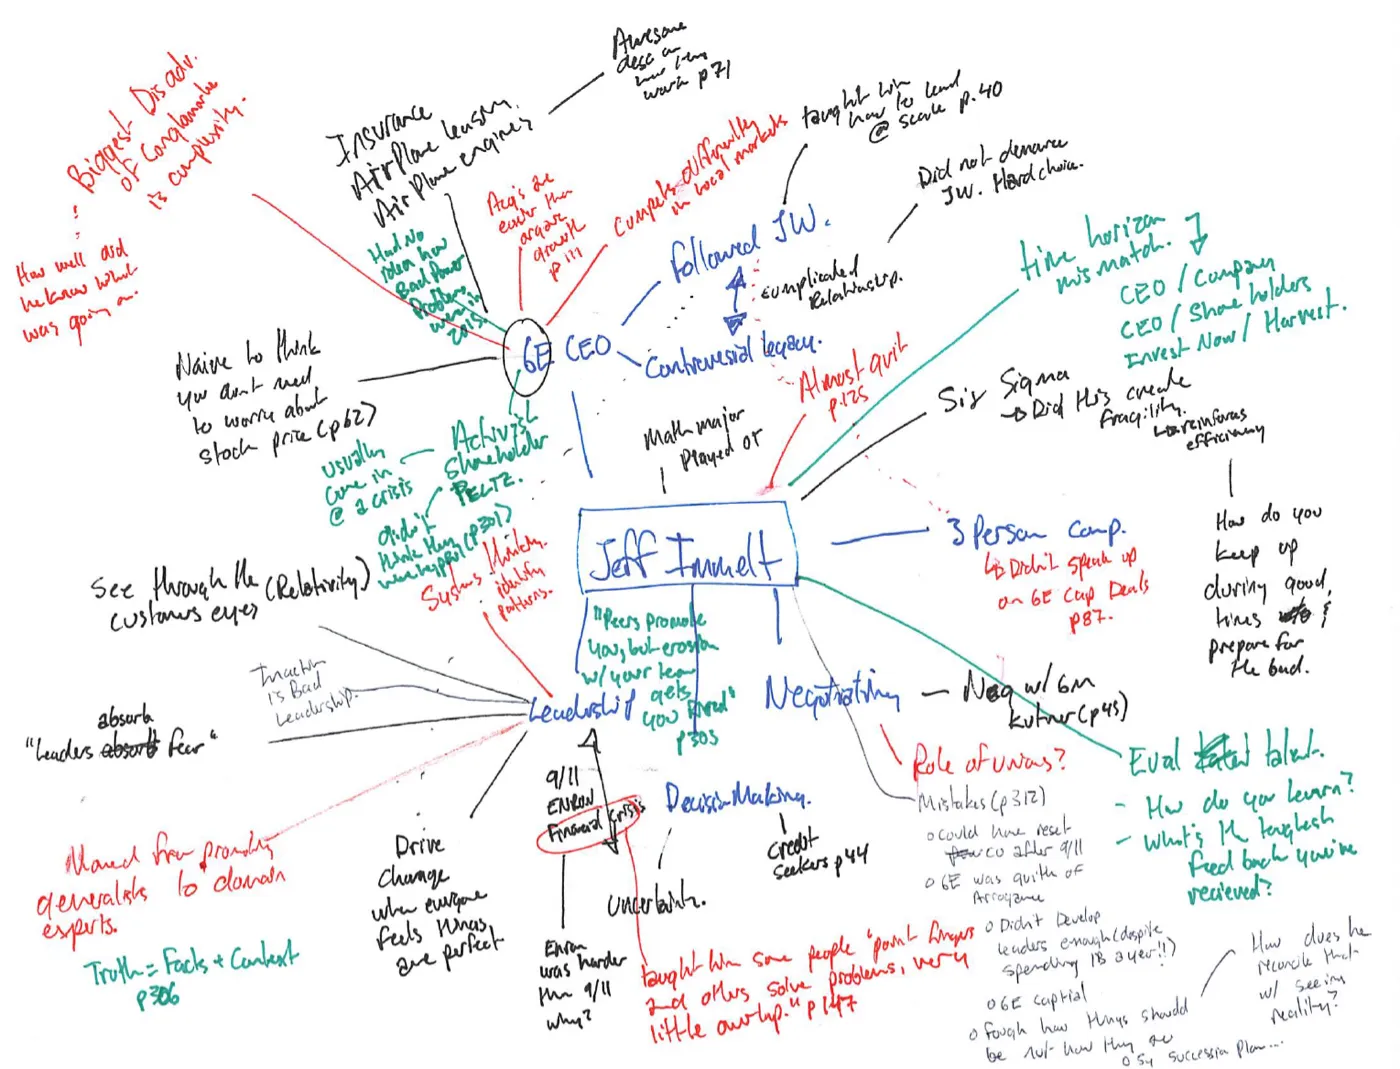 Awesome
desc on
how they
work p71
Biggest Disadv.
of Conglomorate
is complexity.
How well did
he know what
was going on.
Insurance
Airplane leasing.
Airplane engines
Had No
idea how
Bad Power
Problems
were in
2015.
Acq's are
easier than
organic
growth
p 111
Compete differently
in local markets
taught him
how to lead
@ scale p.40
Did not denounce
JW. Hard choice.
followed JW.
Complicated
Relationship.
Controversial legacy.
GE CEO
time horizon
mismatch.
CEO / Company
CEO / Shareholders
Invest Now / Harvest.
Naive to think
you don't need
to worry about
stock price (p62)
Almost quit
p.125
Six Sigma
Did this create
fragility.
reinforces
efficiency
How do you
keep up
during good
times &
prepare for
the bad.
Math major
Played OT
Activist
Shareholder
PELTZ.
usually
come in
@ a crisis
didn't
think they
were (p301)
Systems thinking.
identify
patterns.
Jeff Immelt
3 Person Comp.
Didn't speak up
on GE Cap Deals
p87.
See through the (Relativity)
customers eyes
Inaction
is Bad
Leadership.
absorb
"Leaders absorb fear"
Leadership
"Peers promote
you, but erosion
w/ your team
gets
you fired"
p303
Negotiating
Neg w/ GM
Kutner (p45)
Role of Unions?
Eval talent.
- How do you learn?
- What's the toughest
feedback you've
recieved?
Mistakes (p312)
o Could have reset
co after 9/11
o GE was guilty of
Arrogance
o Didn't Develop
leaders enough (despite
spending 1B a year!!)
o GE captial
o Fough how things should
be not how they are
o Succession plan...
How does he
reconcile that
w/ seeing
reality?
Moved from promoting
generalists to domain
experts.
Truth = Facts + Context
p306
Drive
change
when everyone
feels things
are perfect
9/11
ENRON
Financial Crisis
Enron
was harder
than 9/11
why?
Decision Making.
Uncertainty.
Credit
Seekers p44
taught him some people "point fingers
and others solve problems, very
little overlap." p147